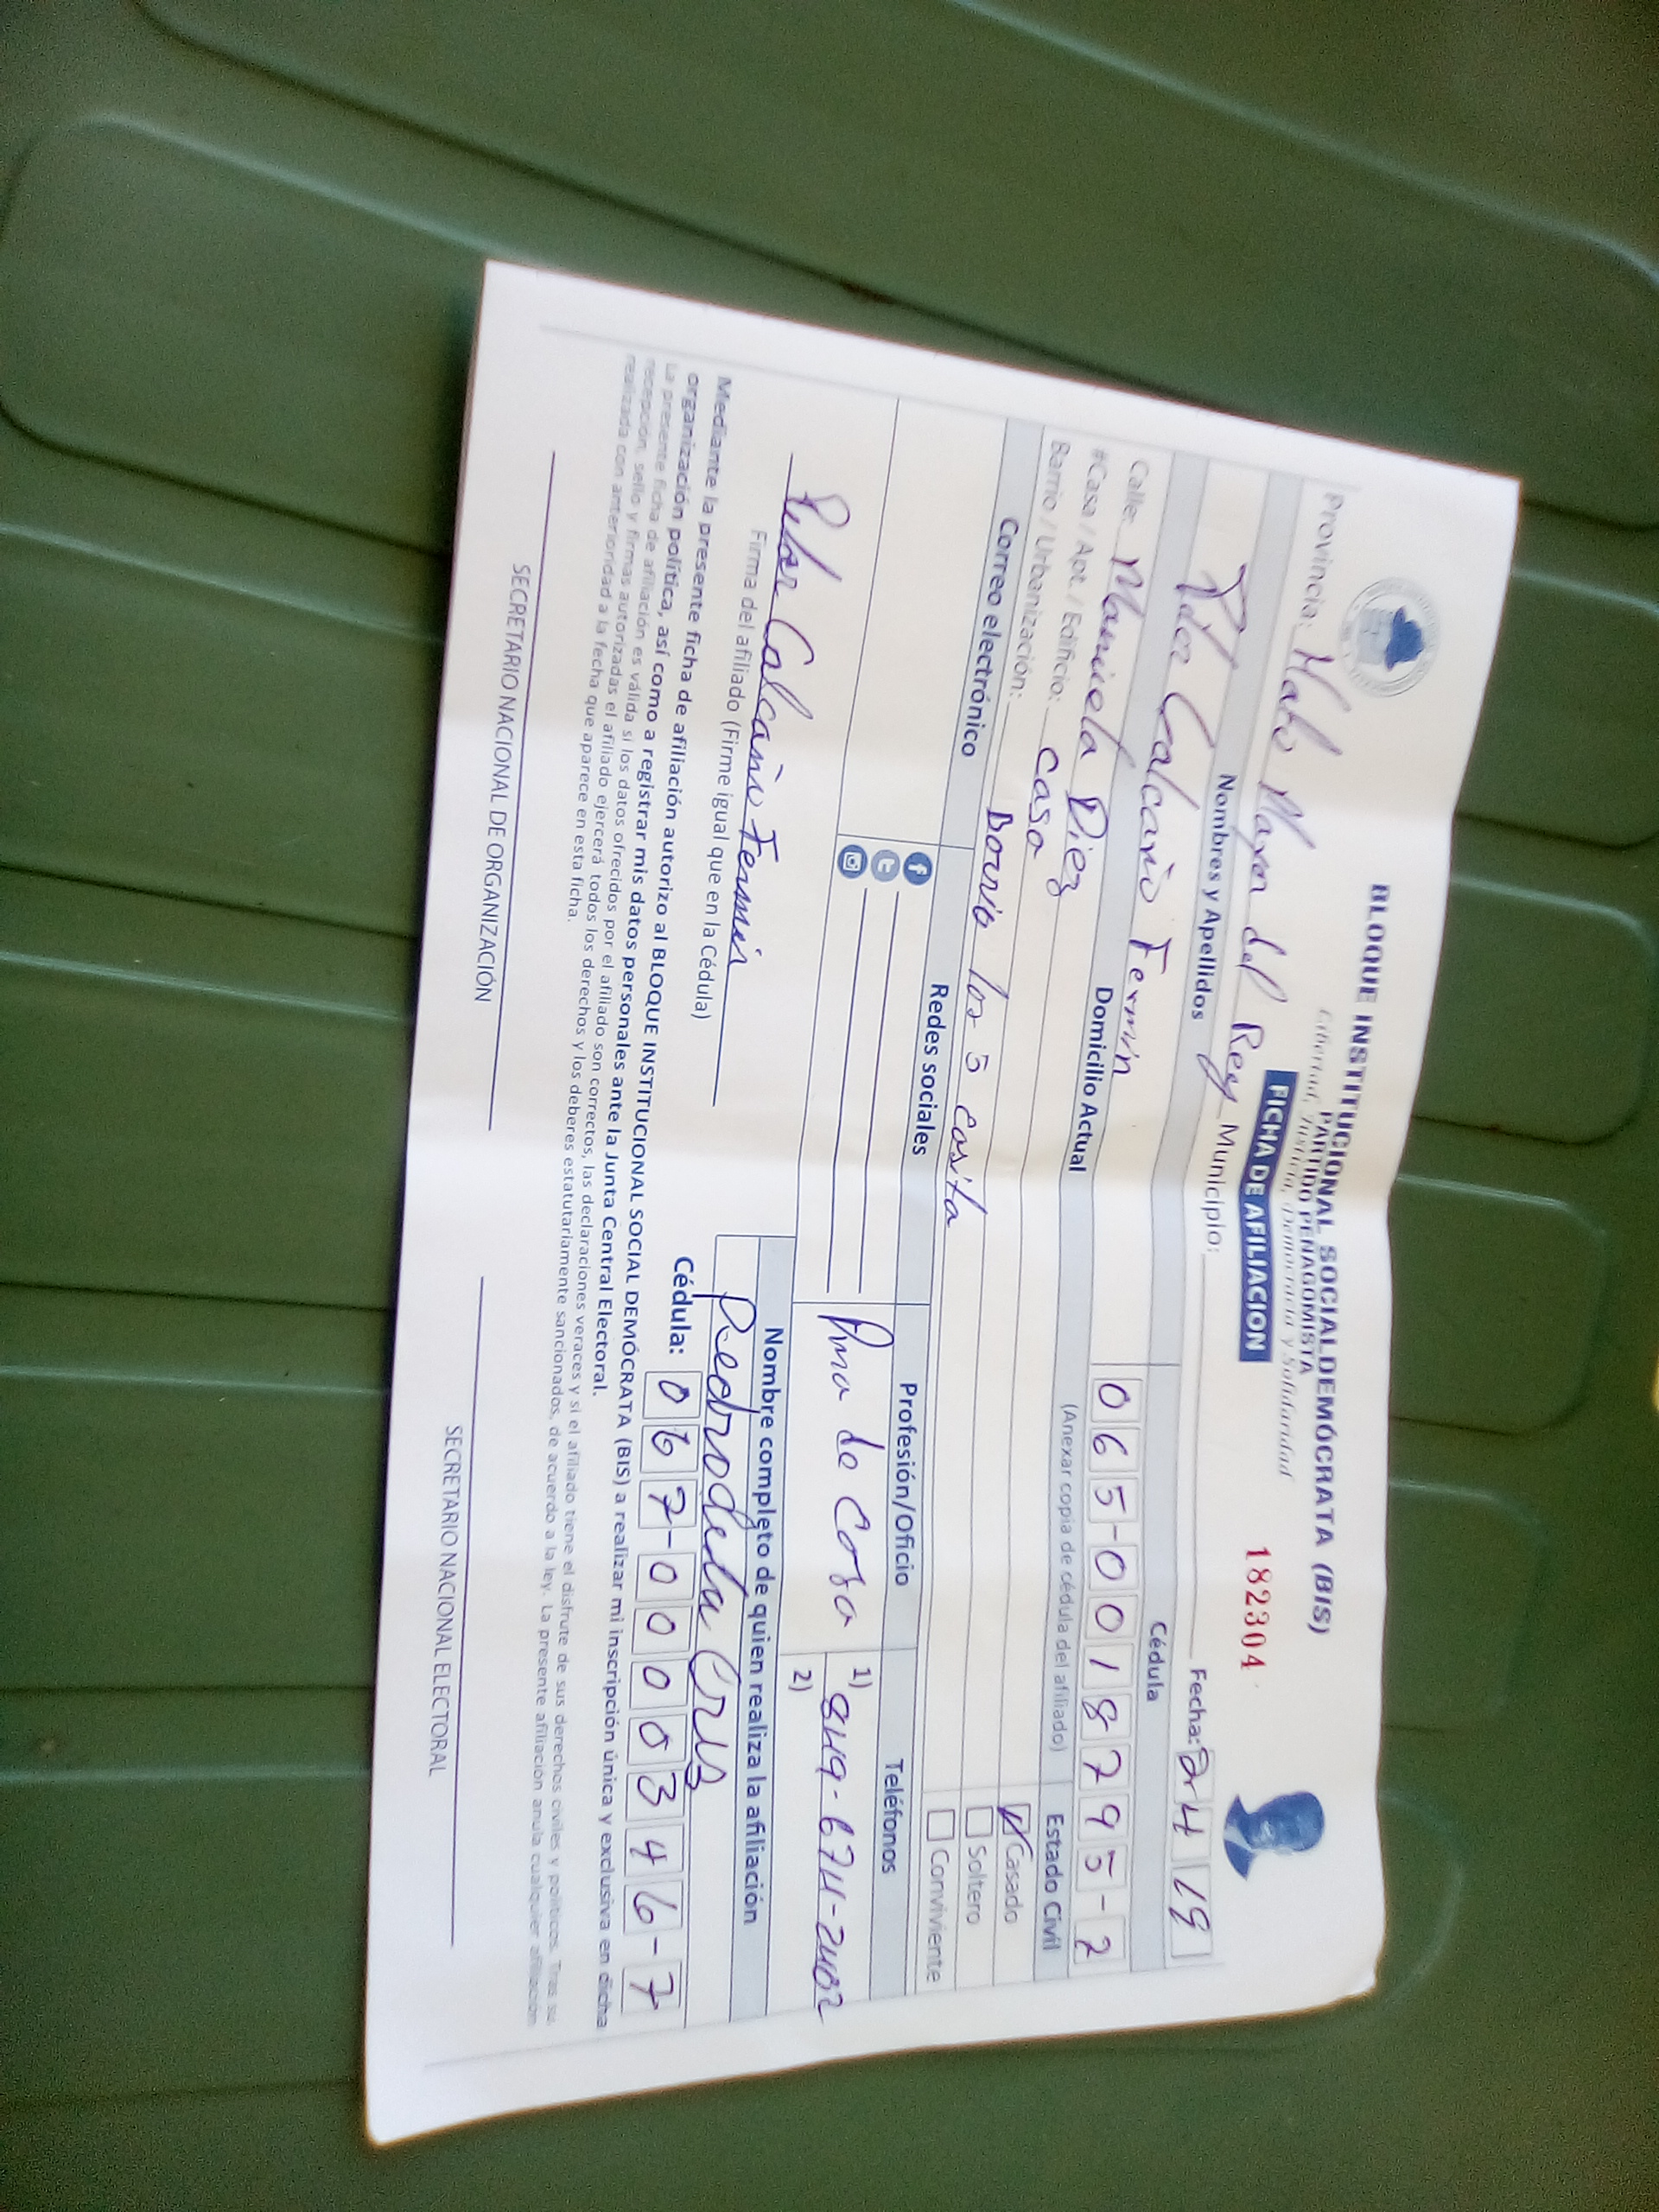 BLOQUE INSTITUCIONAL SOCIALDEMÓCRATA (BIS)
PARTIDO PEÑAGOMISTA
Libertad, Justicia, Democracia y Solidaridad
FICHA DE AFILIACION
182304
Provincia: Hato Mayor del Rey Municipio: Fecha: 2r 4 19
Nombres y Apellidos Cédula
Pilar Calcaño Fermín 065-0018795-2
Domicilio Actual (Anexar copia de cédula del afiliado) Estado Civil
Calle: Manuela Diez
#Casa / Apt. / Edificio: casa
Barrio / Urbanización: Barrio los 5 casita
Casado
Soltero
Conviviente
Correo electrónico Redes sociales Profesión/Oficio Teléfonos
Ama de Casa 1) 849-674-2402
2)
Pilar Calcaño Fermin
Firma del afiliado (Firme igual que en la Cédula)
Nombre completo de quien realiza la afiliación
Pedro de la Crus
Cédula: 067-0000346-7
Mediante la presente ficha de afiliación autorizo al BLOQUE INSTITUCIONAL SOCIAL DEMÓCRATA (BIS) a realizar mi inscripción única y exclusiva en dicha
organización política, así como a registrar mis datos personales ante la Junta Central Electoral.
La presente ficha de afiliación es válida si los datos ofrecidos por el afiliado son correctos, las declaraciones veraces y si el afiliado tiene el disfrute de sus derechos civiles y políticos. Tras su
recepción, sello y firmas autorizadas el afiliado ejercerá todos los derechos y los deberes estatutariamente sancionados, de acuerdo a la ley. La presente afiliación anula cualquier afiliación
realizada con anterioridad a la fecha que aparece en esta ficha.
SECRETARIO NACIONAL DE ORGANIZACIÓN SECRETARIO NACIONAL ELECTORAL